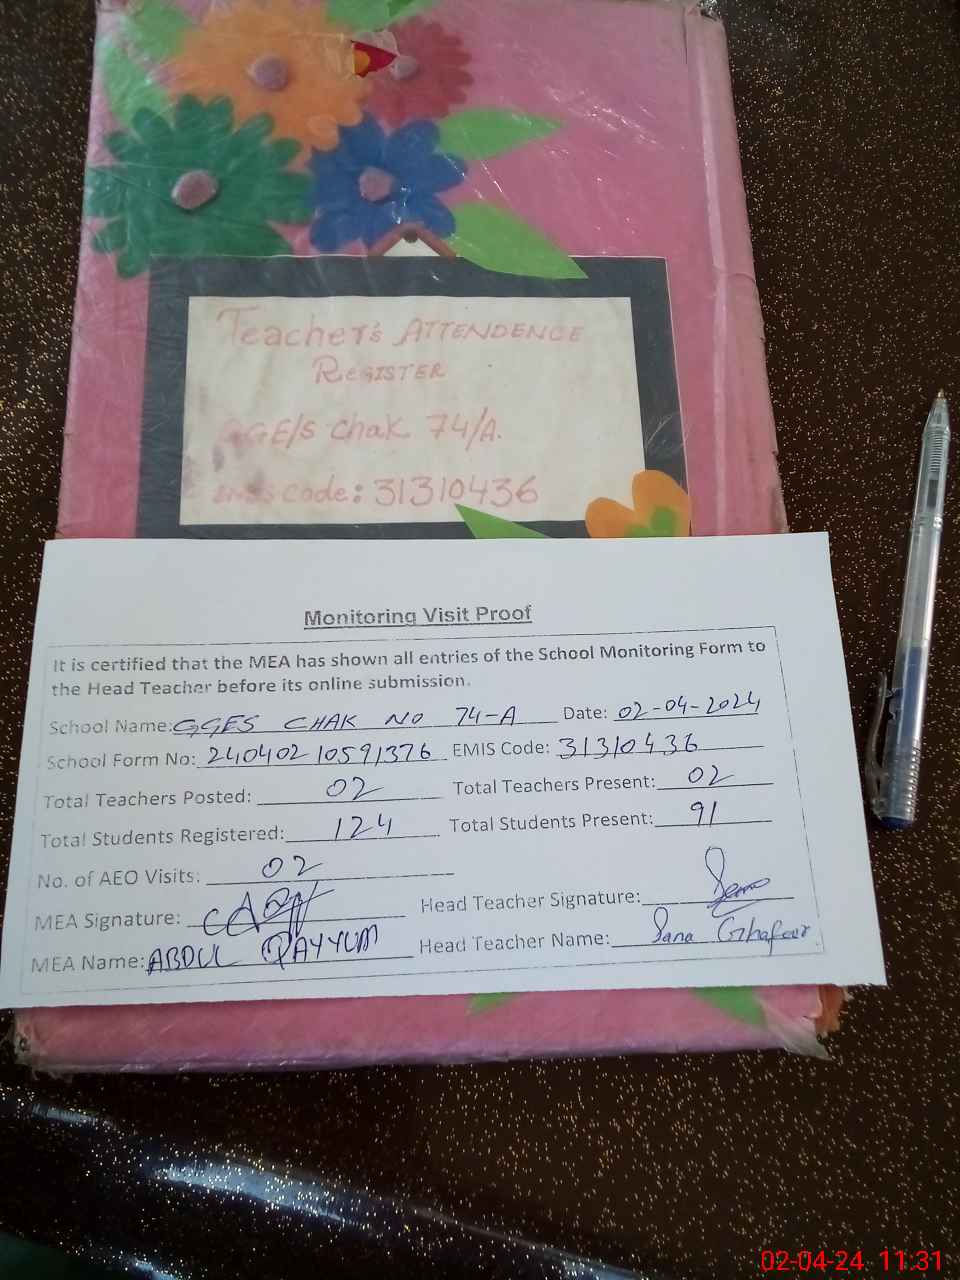 Teacher's ATTENDENCE
REGISTER
GGE/S chak 74/A.
EMIS code: 31310436
Monitoring Visit Proof
It is certified that the MEA has shown all entries of the School Monitoring Form to
the Head Teacher before its online submission.
School Name: GGES CHAK NO 74-A Date: 02-04-2024
School Form No: 24040210591376 EMIS Code: 31310436
Total Teachers Posted: 02 Total Teachers Present: 02
Total Students Registered: 124 Total Students Present: 91
No. of AEO Visits: 02
MEA Signature: Head Teacher Signature:
MEA Name: ABDUL QAYYUM Head Teacher Name: Sana Ghafoor
02-04-24 11:31